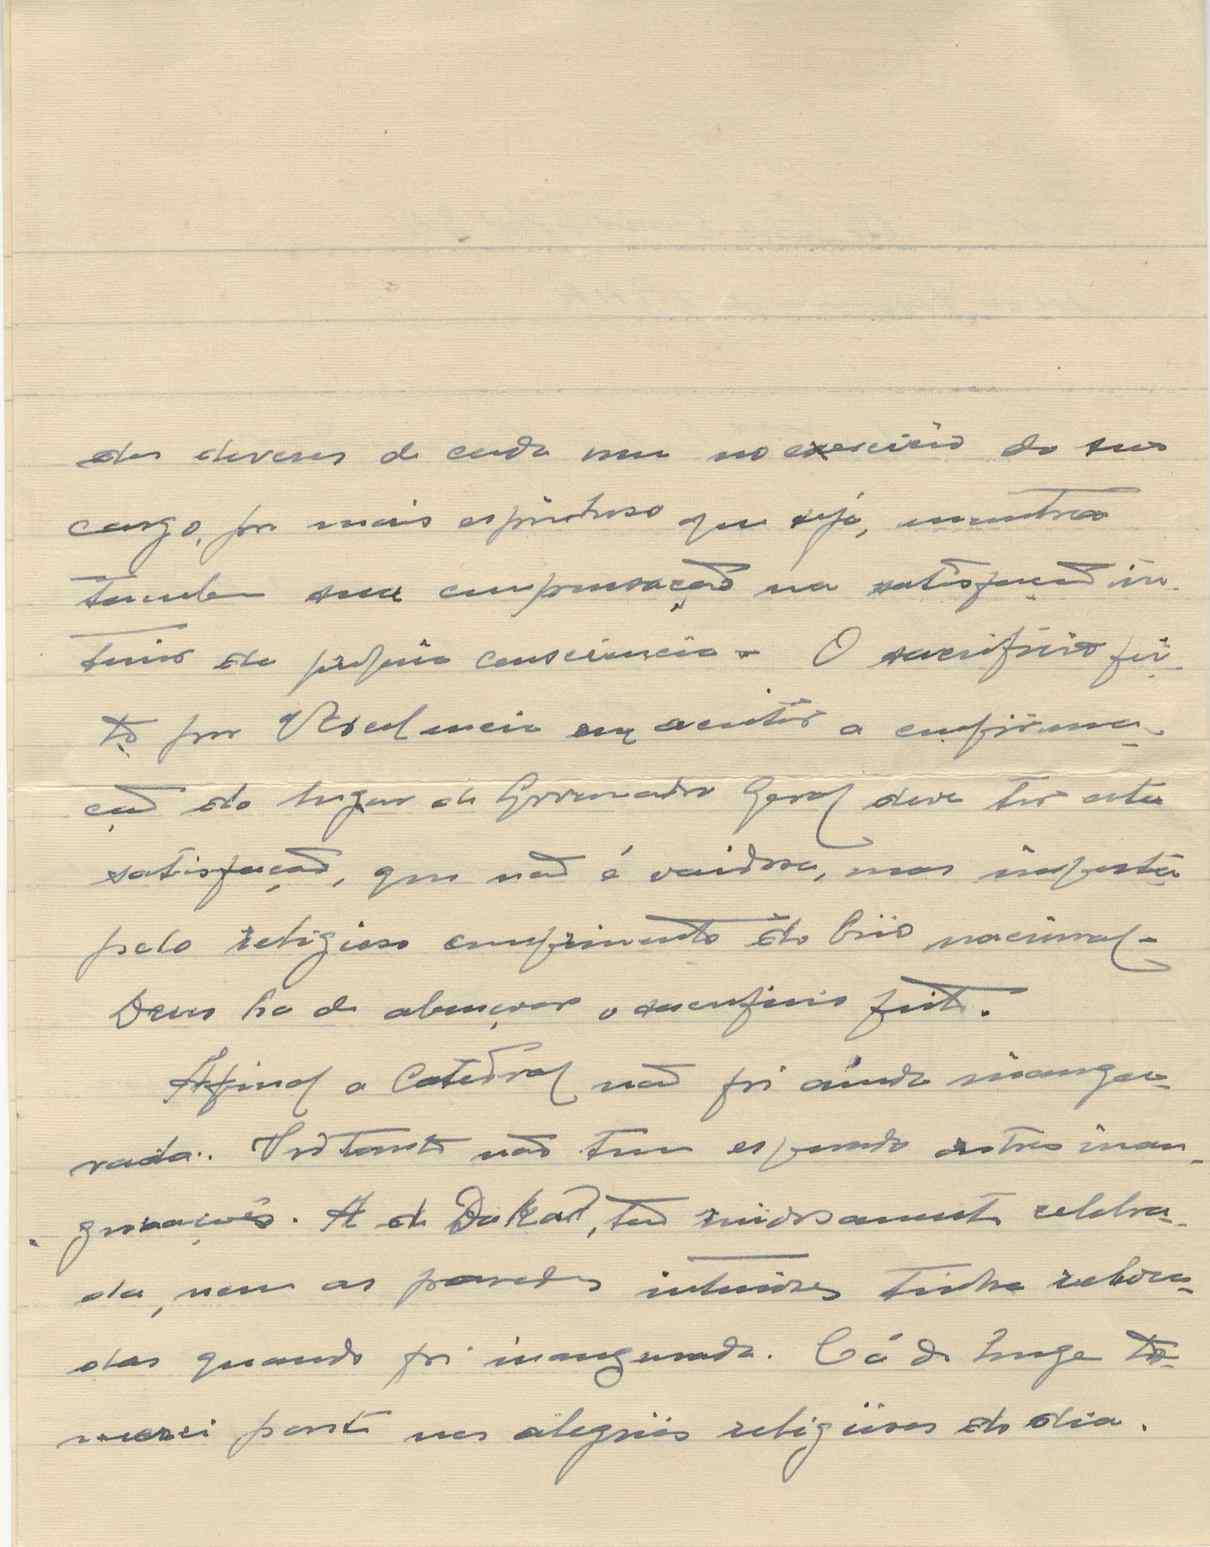 dos deveres de cada um no exercicio do seu
cargo, por mais espinhoso que seja, encontra
tambem sua compensação na satisfação in-
tima da propria consciencia. O sacrificio fei-
to por V. Excelencia em aceitar a confirma-
ção do lugar de Governador Geral deve ter esta
satisfação, que não é vaidosa, mas imposta
pelo religioso cumprimento do brio nacional.
Deus ha de abençoar o sacrificio feito.
Afinal a Catedral não foi ainda inaugu-
rada. Portanto não tem esperado outras inau-
gurações. A de Dakar, tão ruidosamente celebra-
da, nem as paredes interiores tinha reboca-
das quando foi inaugurada. Cá de longe to-
marei parte nas alegrias religiosas do dia.